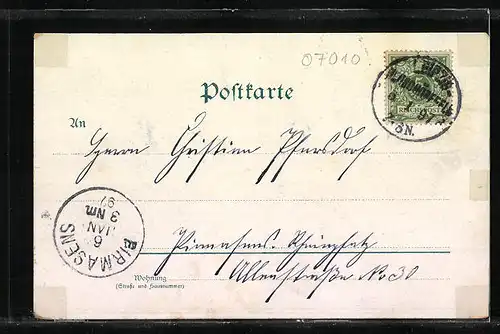 07010
LEIPZIG
7-8N.
Postkarte
An
Herrn Christian Pfersdorf
PIRMASENS
6
JAN
97
3 Nm.
Pirmasens. Rheinpfalz
Wohnung
(Straße und Hausnummer)
Alleestraße No 30